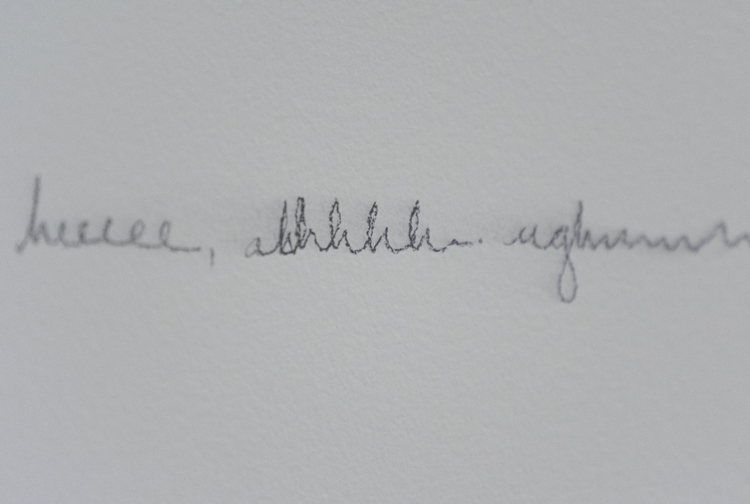 heeeee, ahhhhh. ughmmmm